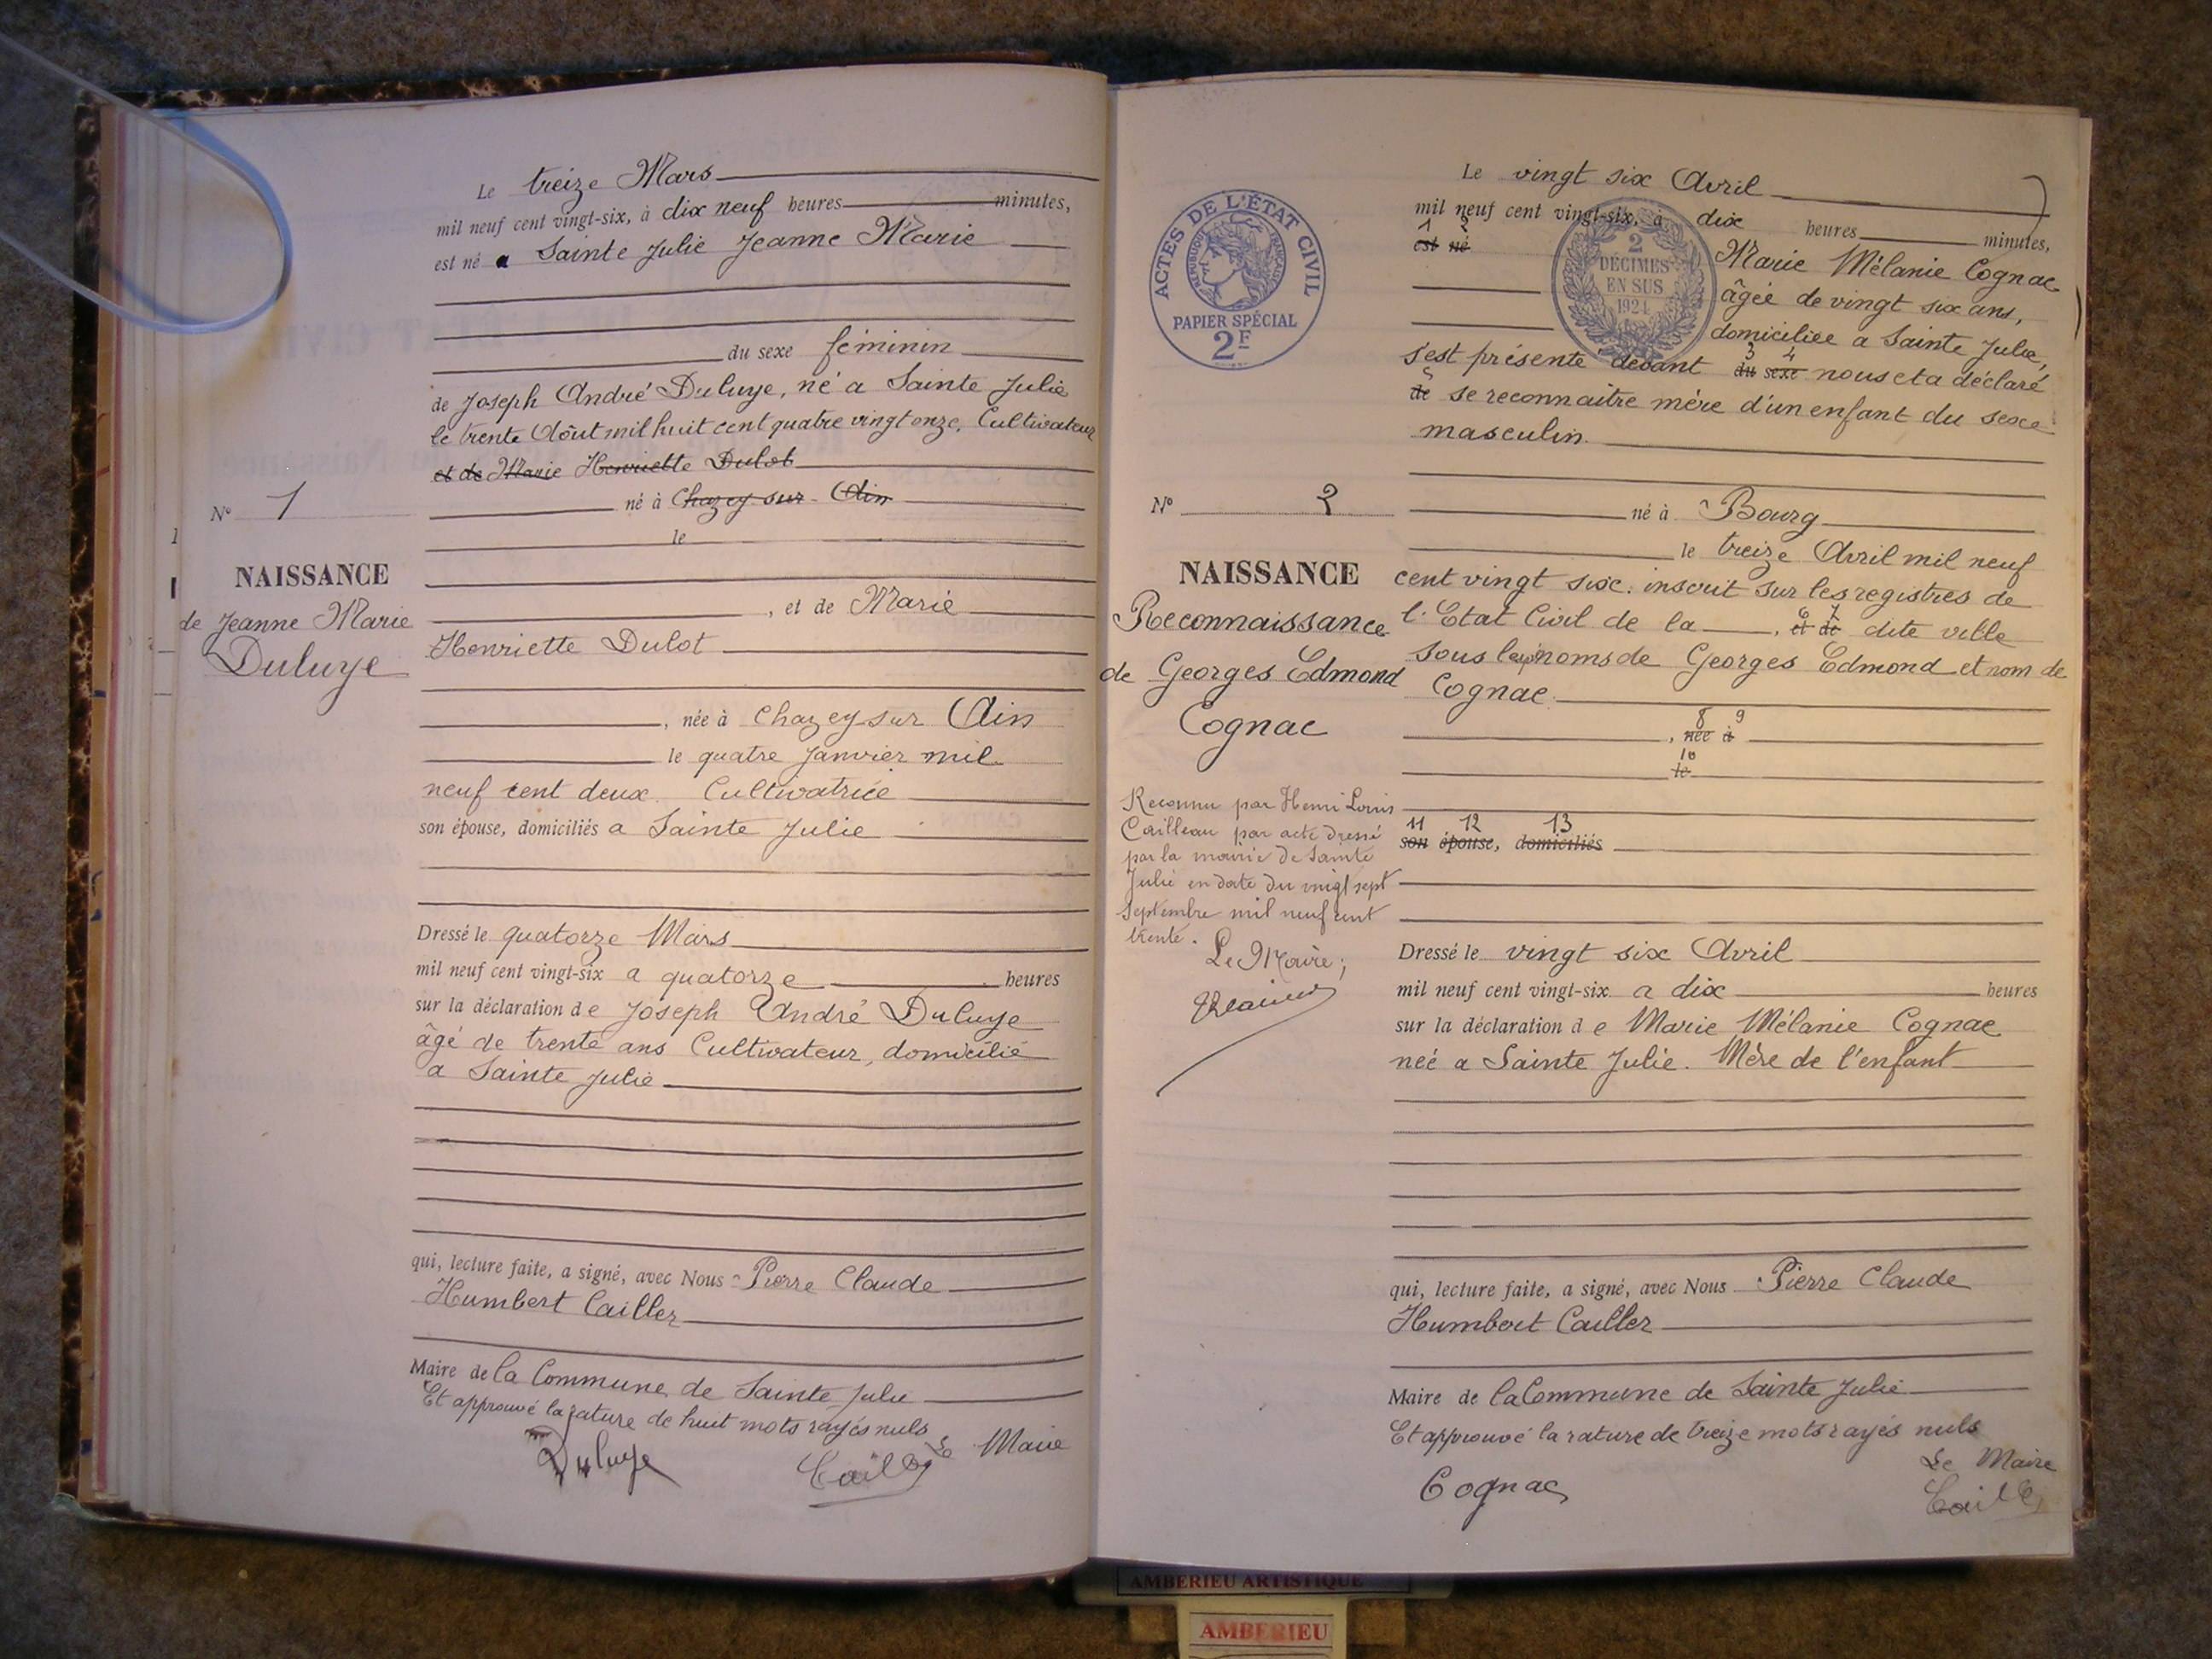 Le treize Mars
mil neuf cent vingt-six, à dix neuf heures minutes,
est né a Sainte Julie Jeanne Marie
du sexe féminin
de Joseph André Duluye, né a Sainte Julie
le trente Août mil huit cent quatre vingt onze, Cultivateur
et de Marie Henriette Dulot
né à Chazey sur Ain
le
N° 1
1
NAISSANCE
de Jeanne Marie
Duluye
, et de Marie
Henriette Dulot
, née à Chazey sur Ain
le quatre Janvier mil
neuf cent deux. Cultivatrice
son épouse, domiciliés a Sainte Julie
Dressé le quatorze Mars
mil neuf cent vingt-six a quatorze heures
sur la déclaration de Joseph André Duluye
âgé de trente ans Cultivateur, domicilié
a Sainte Julie
qui, lecture faite, a signé, avec Nous Pierre Claude
Humbert Cailler
Maire de la Commune de Sainte Julie
Et approuvé la rature de huit mots rayés nuls
Le Maire
Duluye
Cailler
ACTES DE L'ÉTAT CIVIL
RÉPUBLIQUE FRANÇAISE
PAPIER SPÉCIAL
2F
2
DÉCIMES
EN SUS
1924
Le vingt six Avril
mil neuf cent vingt-six, à dix heures minutes,
1 2
est né Marie Mélanie Cognac
âgée de vingt six ans,
domiciliée a Sainte Julie,
3 4
s'est présenté devant du sexe nous et a déclaré
5
de se reconnaître mère d'un enfant du sexe
masculin.
né à Bourg
le treize Avril mil neuf
cent vingt six. inscrit sur les registres de
6 7
l'Etat Civil de la , et de dite ville
sous les prénoms de Georges Edmond et nom de
Cognac.
8 9
, née à
10
le
11 12 13
son épouse, domiciliés
N° 2
NAISSANCE
Reconnaissance
de Georges Edmond
Cognac
Reconnu par Henri Louis
Cailleau par acte dressé
par la mairie de Sainte
Julie en date du vingt sept
Septembre mil neuf cent
trente.
Le Maire;
Dressé le vingt six Avril
mil neuf cent vingt-six a dix heures
sur la déclaration de Marie Mélanie Cognac
neé a Sainte Julie. Mère de l'enfant
qui, lecture faite, a signé, avec Nous Pierre Claude
Humbert Cailler
Maire de la Commune de Sainte Julie
Et approuvé la rature de treize mots rayés nuls
Le Maire
Cognac
Cailler
AMBERIEU ARTISTIQUE
AMBERIEU